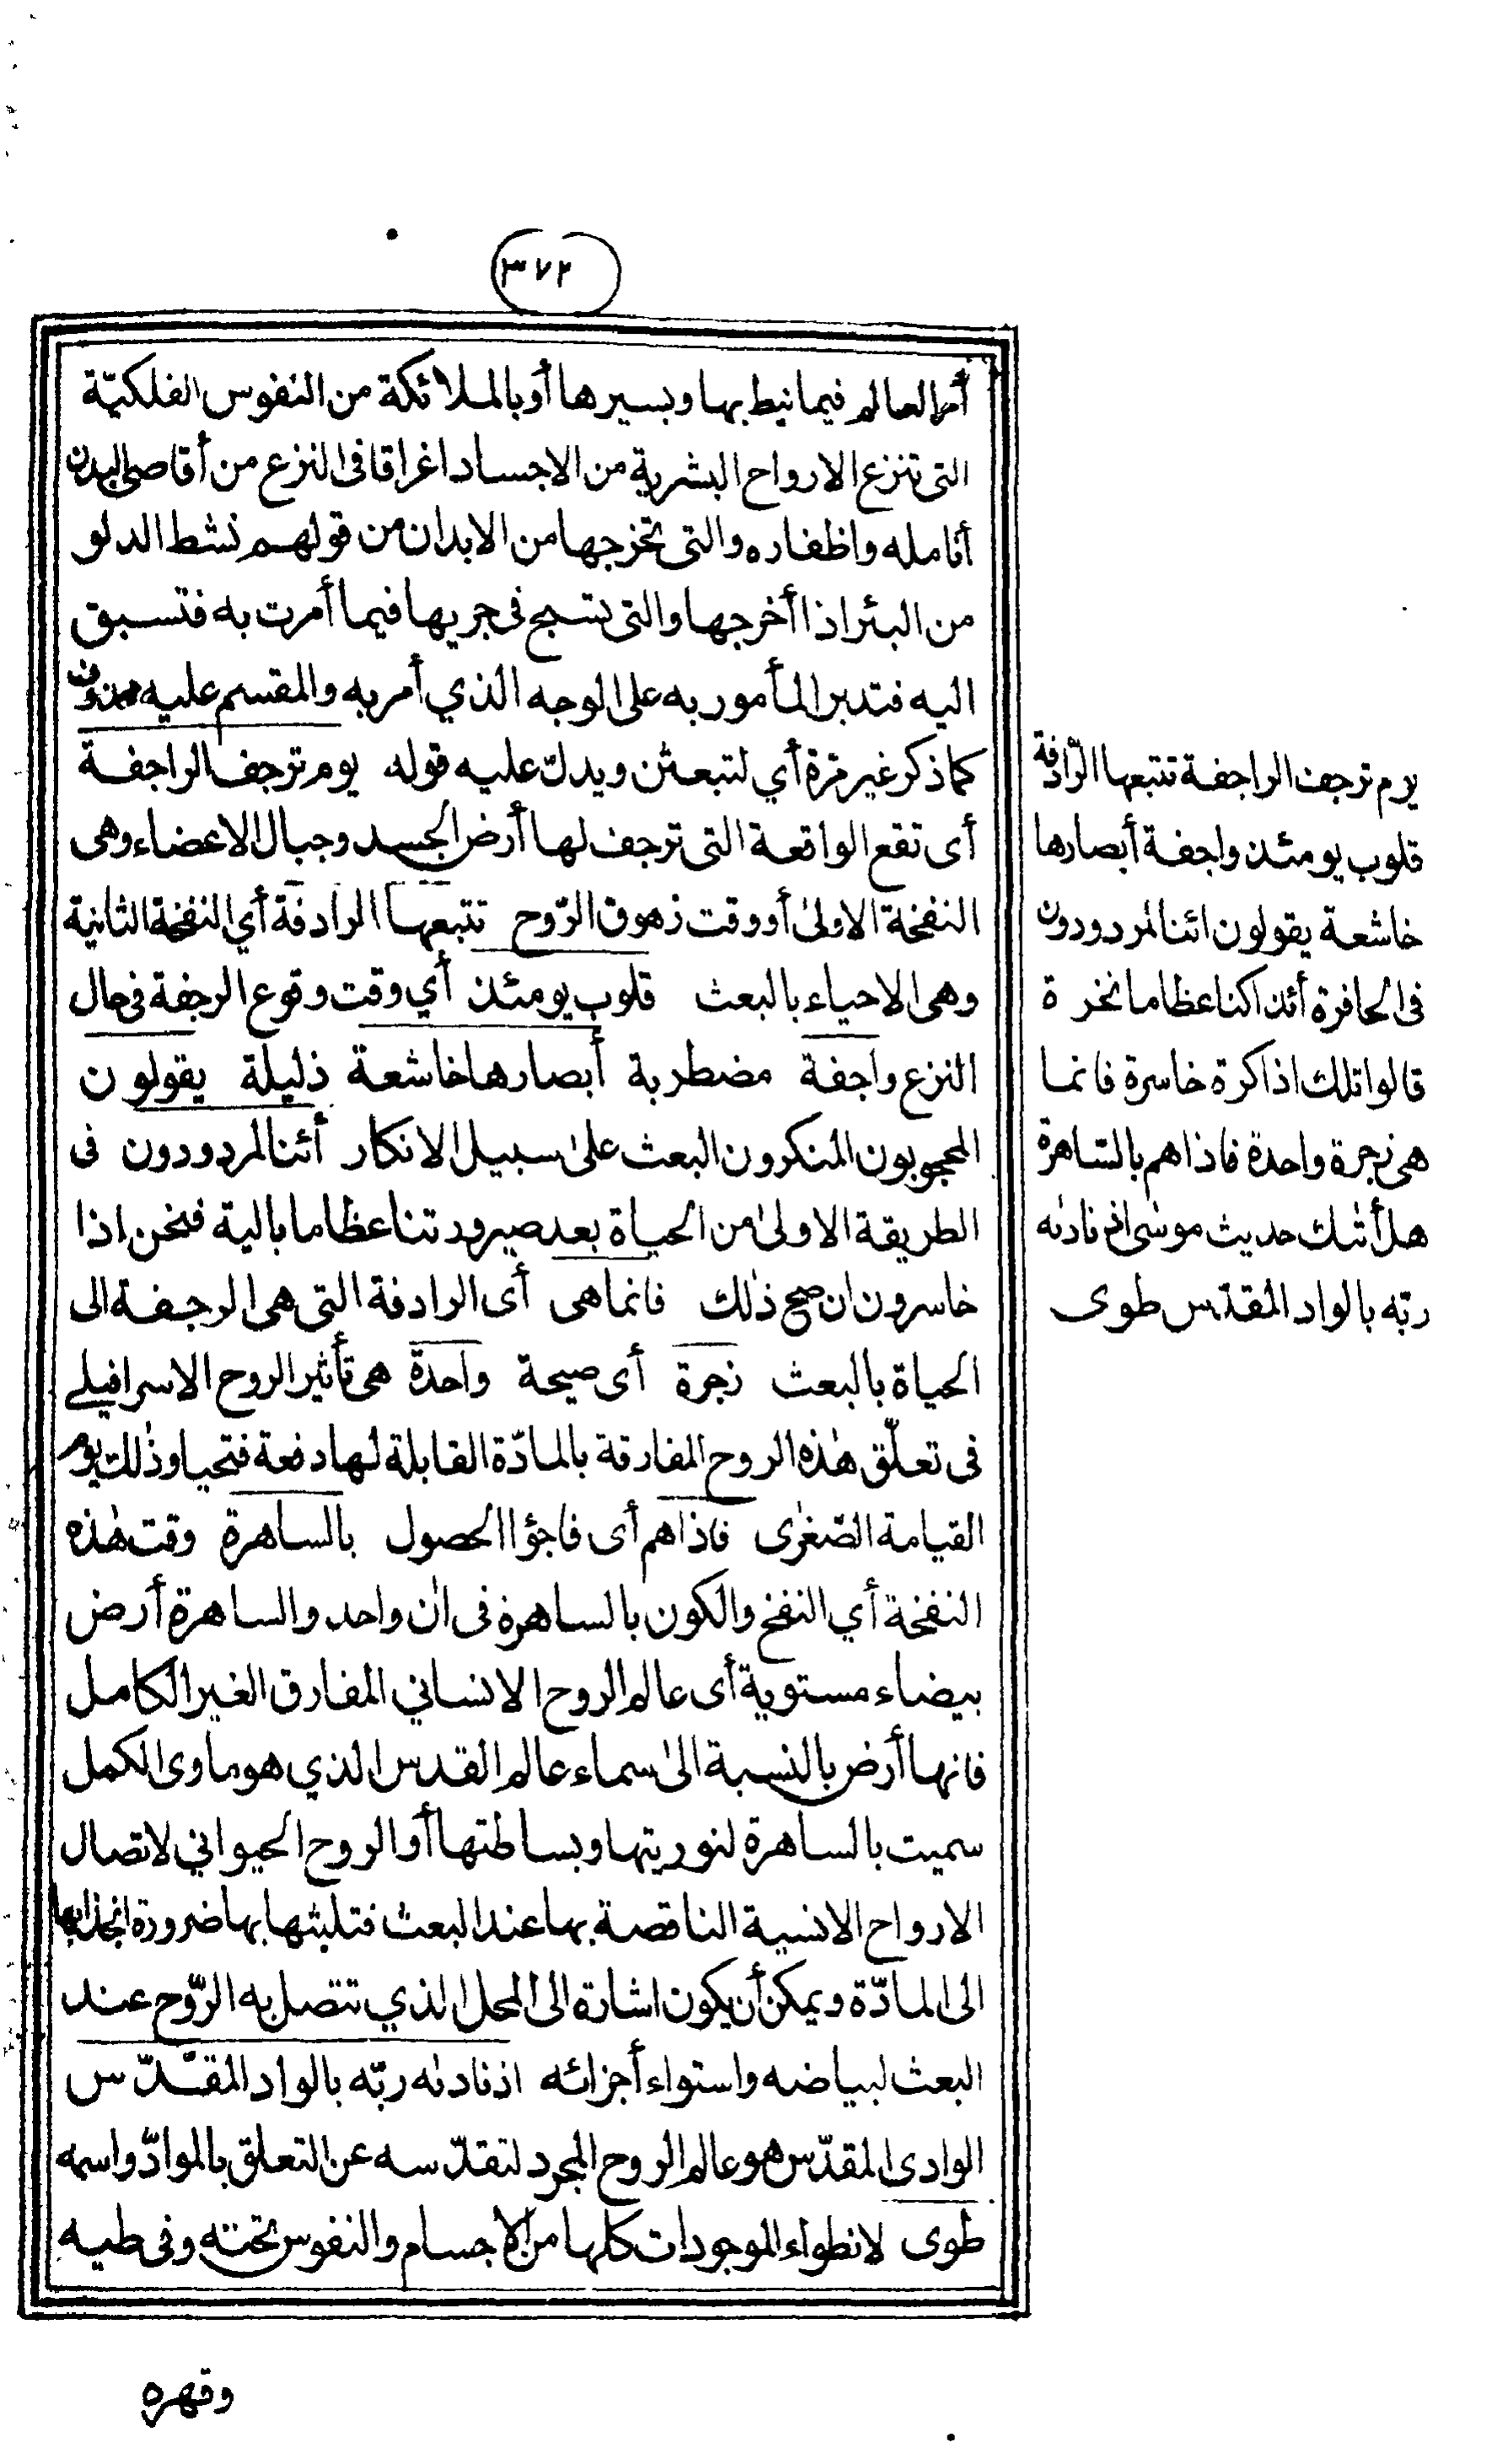 ٣٧٢
أمر العالم فيما نيط بها وبسيرها أو بالملائكة من النفوس الفلكيّة
التى تنزع الارواح البشرية من الاجساد اغراقا فى النزع من أقاصى البدن
أنامله واظفاره والتى تخرجها من الابدان من قولهم نشط الدلو
من البئر اذا أخرجها والتى تسبح فى جريها فيما أمرت به فتسبق
اليه فتدبر المأمور به على الوجه الذي أمر به والمقسم عليه محذوف
كما ذكر غير مرّة أي لتبعثن ويدلّ عليه قوله يوم ترجف الراجفة
أى تقع الواقعة التى ترجف لها أرض الجسد وجبال الاعضاء وهى
النفخة الاولىٰ أو وقت زهوق الرّوح تتبعها الرادفة أي النفخة الثانية
وهى الاحياء بالبعث قلوب يومئذ أي وقت وقوع الرجفة فى حال
النزع واجفة مضطربة أبصارها خاشعة ذليلة يقولون
المحجوبون المنكرون البعث علىٰ سبيل الانكار أئنا لمردودون فى
الطريقة الاولىٰ من الحياة بعد صيرورتنا عظاما بالية فنحن اذا
خاسرون ان صح ذٰلك فانما هى أى الرادفة التى هى الرجفة الى
الحياة بالبعث زجرة أى صيحة واحدة هى تأثير الروح الاسرافيلے
فى تعلّق هٰذه الروح المفارقة بالمادّة القابلة لها دفعة فتحيا وذٰلك يوم
القيامة الصّغرٰى فاذا هم أى فاجؤا الحصول بالساهرة وقت هٰذه
النفخة أي النفخ والكون بالساهرة فى اٰن واحد والساهرة أرض
بيضاء مستوية أى عالم الروح الانساني المفارق الغير الكامل
فانها أرض بالنسبة الىٰ سماء عالم القدس الذي هو ماوى الكمل
سميت بالساهرة لنوريتها وبساطتها أو الروح الحيواني لاتصال
الارواح الانسية الناقصة بها عند البعث فتلبثها بها ضرورة انجذابها
الى المادّة ويمكن أن يكون اشارة الى المحل الذي تتصل به الرّوح عند
البعث لبياضه واستواء أجزائه اذ نادىٰه ربّه بالواد المقدّس
الوادى المقدّس هو عالم الروح المجرد لتقدّسه عن التعلق بالموادّ واسمه
طوى لانطواء الموجودات كلها من الاجسام والنفوس تحته وفى طيه
وقهره
يوم ترجف الراجفة تتبعها الرّادفة
قلوب يومئذ واجفة أبصارها
خاشعة يقولون ائنا لمردودون
فى الحافرة أئذا كنا عظاما نخرة
قالوا تلك اذا كرة خاسرة فانما
هى زجرة واحدة فاذا هم بالسّاهرة
هل أتٰك حديث موسٰى اذ نادىٰه
ربّه بالواد المقدّس طوى